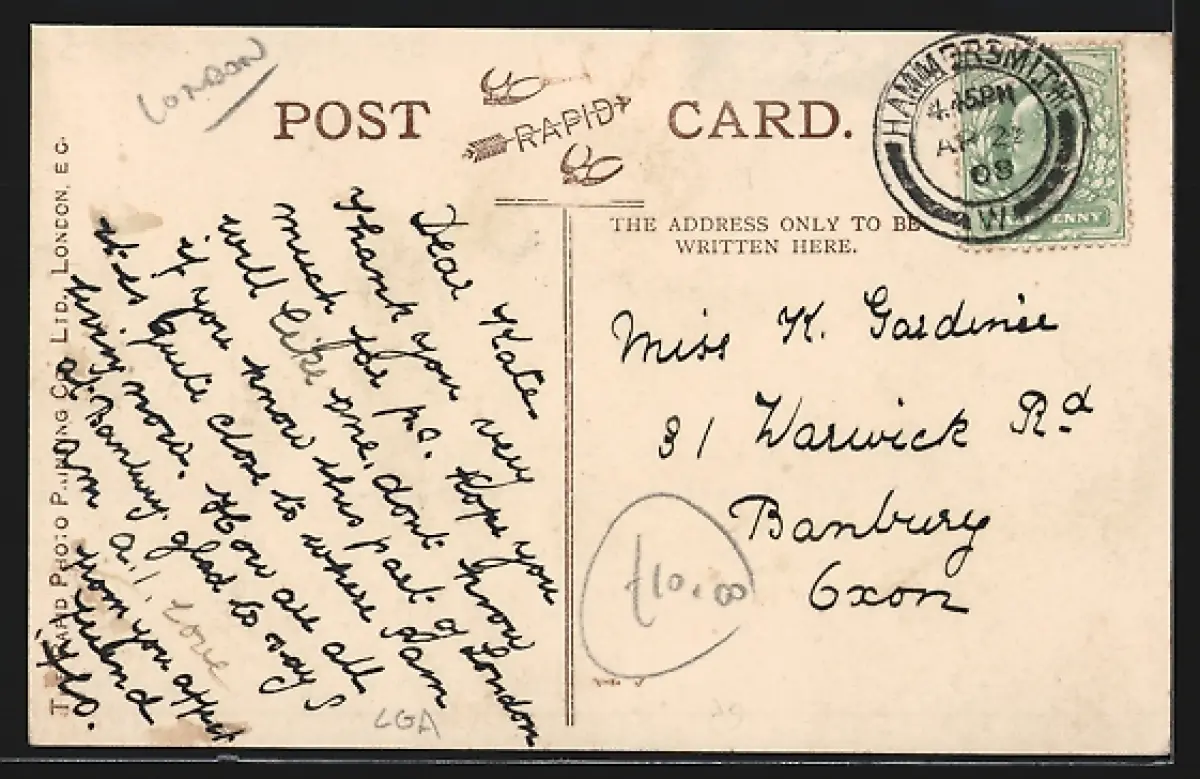 LONDON
POST CARD.
RAPID
HAMMERSMITH
4.45PM
AP 22
08
W
THE ADDRESS ONLY TO BE
WRITTEN HERE.
Dear Kate
Thank you very
much for p.c. Hope you
will like one. dont know
if you know this part of London
it is quite close to where I am
living now. How are all
at Banbury. glad to say I
am a.1. Love
from you affect
friend
Flo.
Miss K. Gardiner
31 Warwick Rd
Banbury
Oxon
£10.00
LGA
PHOTO PRINTING CO LTD, LONDON, E.C.